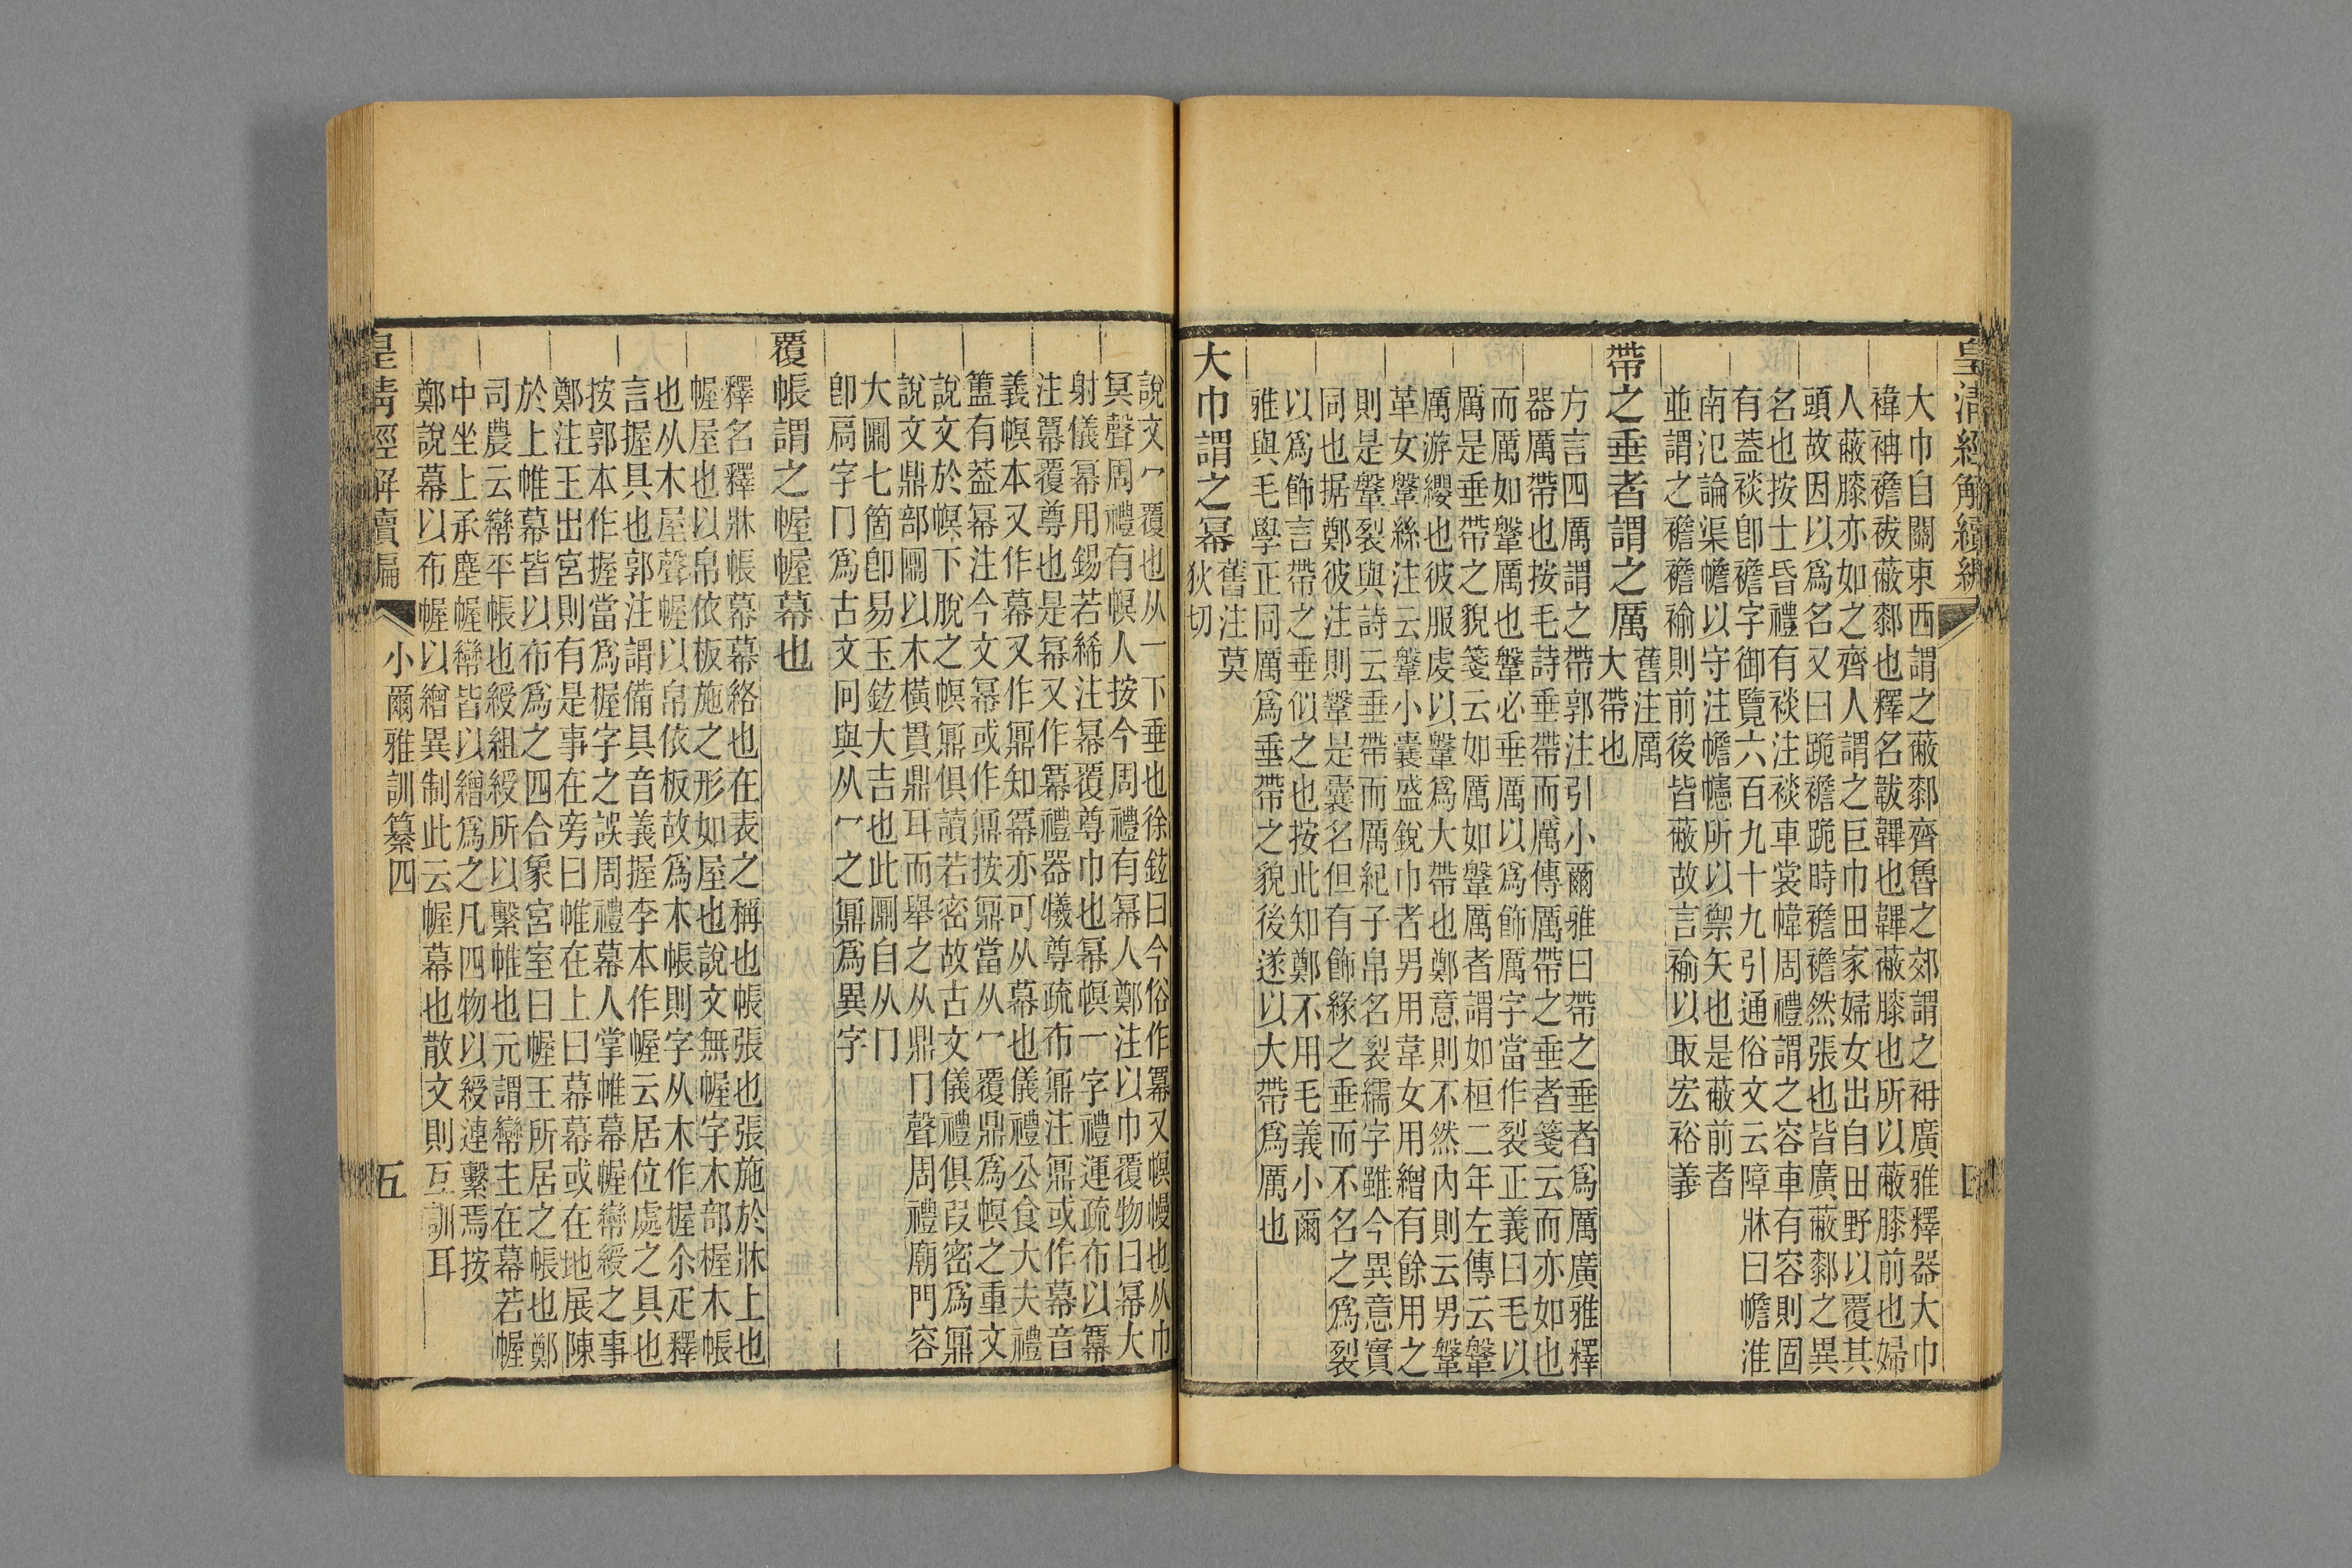 皇清經解續編
大巾自關東西謂之蔽厀齊魯之郊謂之袡廣雅釋器大巾
褘袡襜袚蔽厀也釋名韍韠也韠蔽膝也所以蔽膝前也婦
人蔽膝亦如之齊人謂之巨巾田家婦女出自田野以覆其
頭故因以爲名又曰跪襜跪時襜襜然張也皆廣蔽厀之異
名也按士昏禮有裧注裧車裳幃周禮謂之容車有容則固
有葢裧卽襜字御覽六百九十九引通俗文云障牀曰幨淮
南氾論渠幨以守注幨幰所以禦矢也是蔽前者
並謂之襜襜褕則前後皆蔽故言褕以取宏裕義
帶之垂者謂之厲
舊注厲
大帶也
方言四厲謂之帶郭注引小爾雅曰帶之垂者爲厲廣雅釋
器厲帶也按毛詩垂帶而厲傳厲帶之垂者箋云而亦如也
而厲如鞶厲也鞶必垂厲以爲飾厲字當作裂正義曰毛以
厲是垂帶之貌箋云如厲如鞶厲者謂如桓二年左傳云鞶
厲游纓也彼服虔以鞶爲大帶也鄭意則不然內則云男鞶
革女鞶絲注云鞶小囊盛銳巾者男用韋女用繒有餘用之
則是鞶裂與詩云垂帶而厲紀子帛名裂繻字雖今異意實
同也据鄭彼注則鞶是囊名但有飾緣之垂而不名之爲裂
以爲飾言帶之垂似之也按此知鄭不用毛義小爾
雅與毛學正同厲爲垂帶之貌後遂以大帶爲厲也
大巾謂之冪
舊注莫
狄切
說文冖覆也从一下垂也徐鉉曰今俗作冪又幎幔也从巾
冥聲周禮有幎人按今周禮有冪人鄭注以巾覆物曰冪大
射儀冪用錫若絺注冪覆尊巾也冪幎一字禮運疏布以冪
注冪覆尊也是冪又作冪禮器犧尊疏布鼏注鼏或作幕音
義幎本又作幕又作鼏知冪亦可从幕也儀禮公食大夫禮
簠有葢冪注今文冪或作鼏按鼏當从冖覆鼎爲幎之重文
說文於幎下脫之幎鼏俱讀若密故古文儀禮俱叚密爲鼏
說文鼎部鼏以木橫貫鼎耳而舉之从鼎冂聲周禮廟門容
大鼏七箇卽易玉鉉大吉也此鼏自从冂
卽扃字冂爲古文冋與从冖之鼏爲異字
覆帳謂之幄幄幕也
釋名釋牀帳幕幕絡也在表之稱也帳張也張施於牀上也
幄屋也以帛依板施之形如屋也說文無幄字木部楃木帳
也从木屋聲幄以帛依板故爲木帳則字从木作楃尒疋釋
言握具也郭注謂備具音義握李本作幄云居位處之具也
按郭本作握當爲楃字之誤周禮幕人掌帷幕幄帟綬之事
鄭注王出宮則有是事在旁曰帷在上曰幕幕或在地展陳
於上帷幕皆以布爲之四合象宮室曰幄王所居之帳也鄭
司農云帟平帳也綬組綬所以繫帷也元謂帟主在幕若幄
中坐上承塵幄帟皆以繒爲之凡四物以綬連繫焉按
鄭說幕以布幄以繒異制此云幄幕也散文則互訓耳
皇清經解續編
小爾雅訓纂四
五